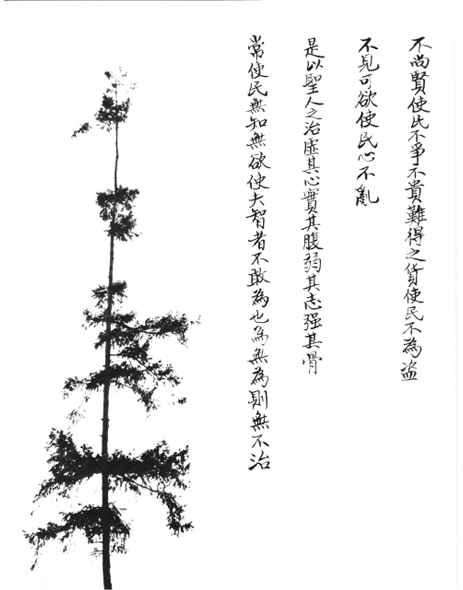 不尚賢使民不爭不貴難得之貨使民不為盜
不見可欲使民心不亂
是以聖人之治虛其心實其腹弱其志强其骨
常使民無知無欲使大智者不敢為也為無為則無不治